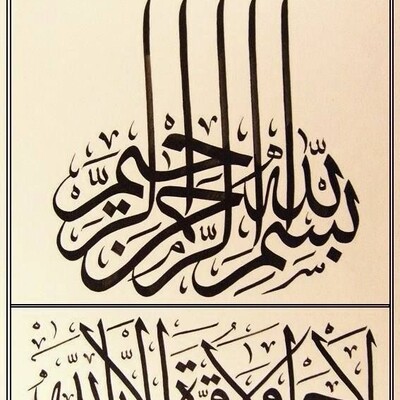 بسم الله الرحمن الرحيم
لا حول ولا قوة إلا بالله